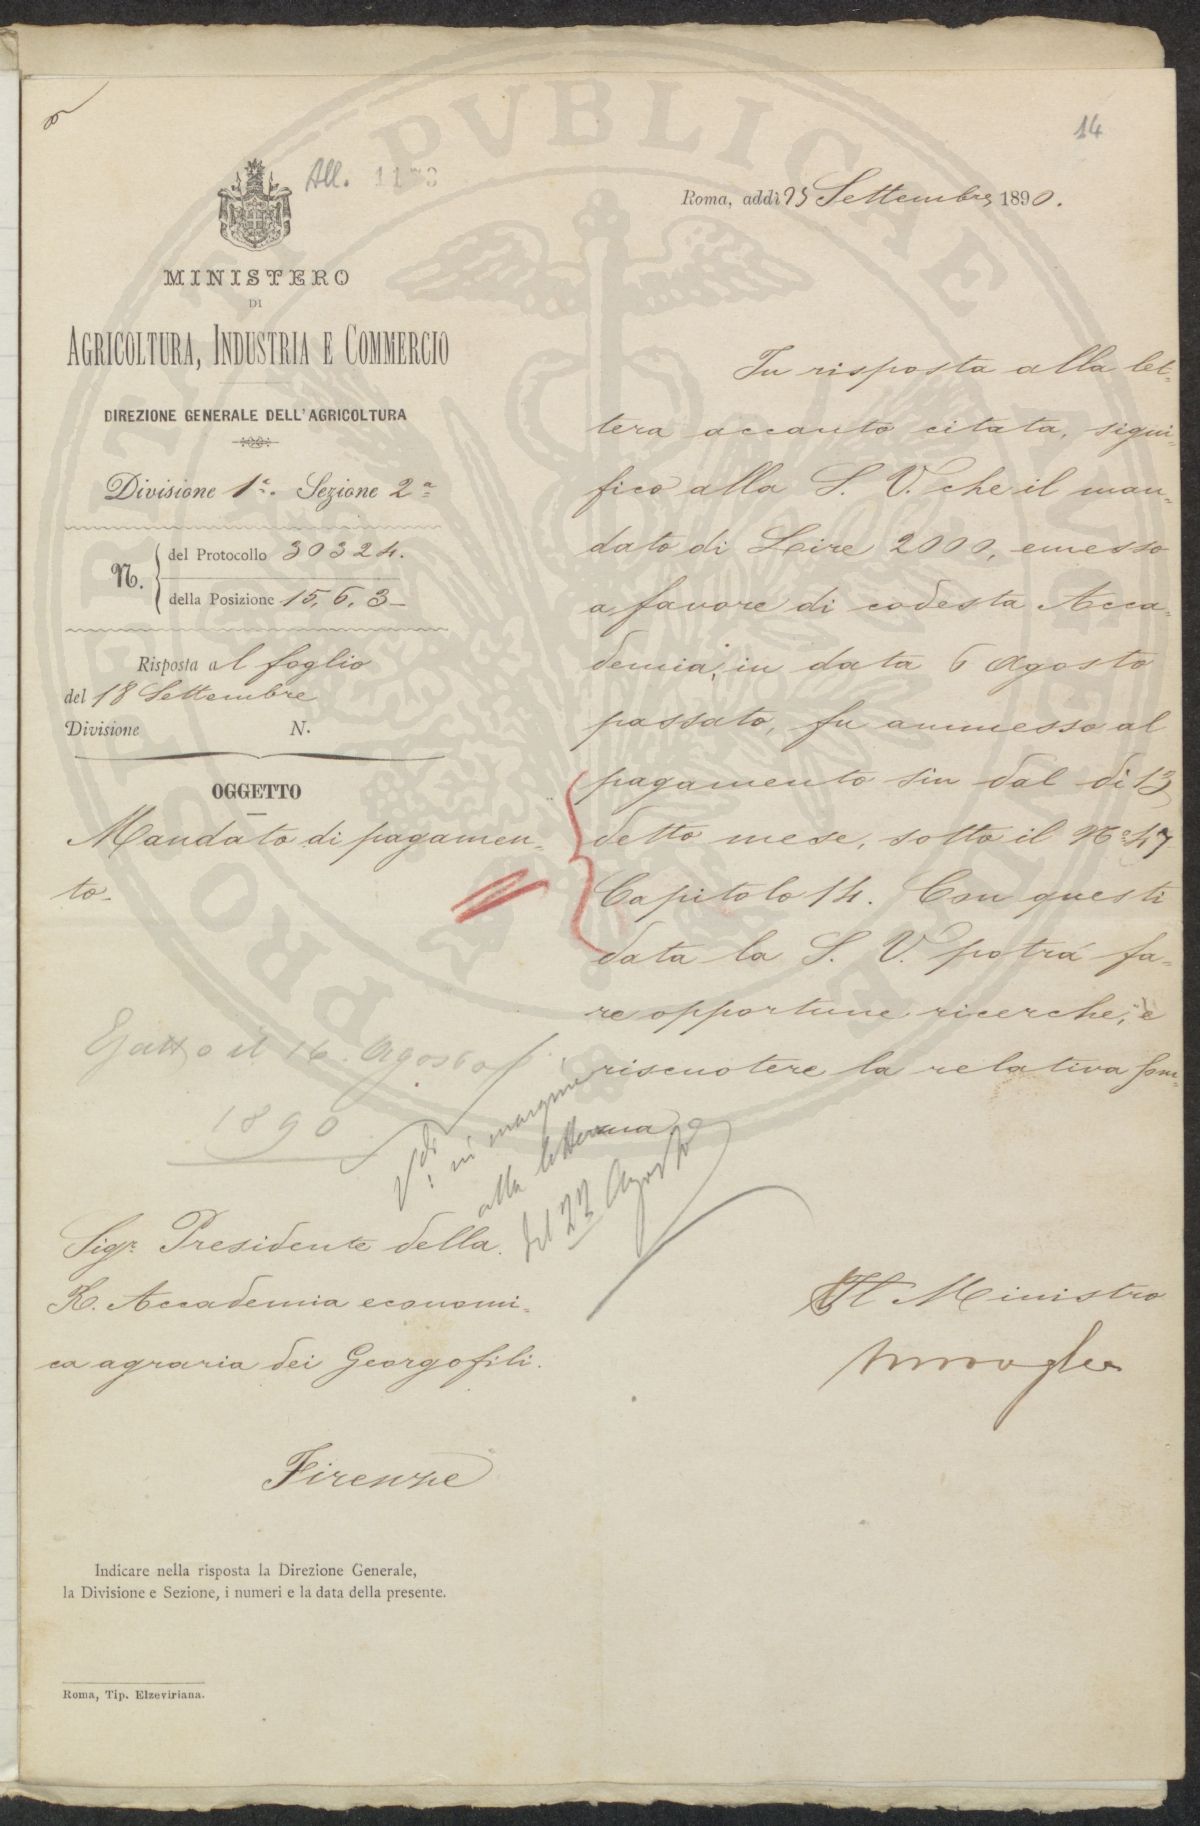 14
All. 1173
Roma, addì 25 Settembre 1890.
MINISTERO
DI
AGRICOLTURA, INDUSTRIA E COMMERCIO
DIREZIONE GENERALE DELL'AGRICOLTURA
Divisione 1ª. Sezione 2ª
N. del Protocollo 30324.
della Posizione 15, 6, 3
Risposta al foglio
del 18 Settembre
Divisione N.
OGGETTO
Mandato di pagamen-
to.
In risposta alla let-
tera accanto citata, signi-
fico alla S. V. che il man-
dato di Lire 2000, emesso
a favore di codesta Acca-
demia, in data 6 Agosto
passato, fu ammesso al
pagamento sin dal dì 13
detto mese, sotto il Nº 47
Capitolo 14. Con questi
data la S. V. potrà fa-
re opportune ricerche, e
riscuotere la relativa som-
ma
Esatto il 16. Agosto
1890
Vdi: in margine
alla lettera
del 23 Agosto
Sigr. Presidente della
R. Accademia economi-
ca agraria dei Georgofili.
Firenze
Il Ministro
Indicare nella risposta la Direzione Generale,
la Divisione e Sezione, i numeri e la data della presente.
Roma, Tip. Elzeviriana.